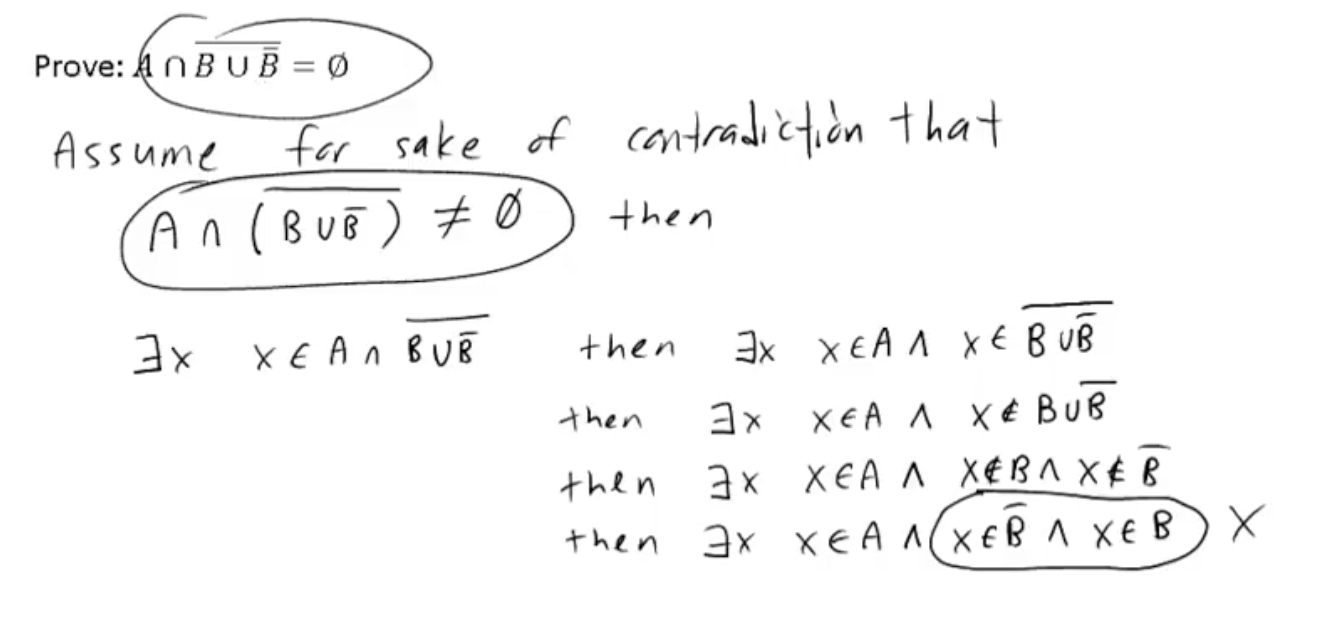 Prove: A ∩ \overline{B ∪ \overline{B}} = ∅
Assume for sake of contradiction that
A ∩ (\overline{B ∪ \overline{B}}) ≠ ∅ then
∃x x ∈ A ∩ \overline{B ∪ \overline{B}} then ∃x x ∈ A ∧ x ∈ \overline{B ∪ \overline{B}}
then ∃x x ∈ A ∧ x ∉ B ∪ \overline{B}
then ∃x x ∈ A ∧ x ∉ B ∧ x ∉ \overline{B}
then ∃x x ∈ A ∧ x ∈ \overline{B} ∧ x ∈ B X